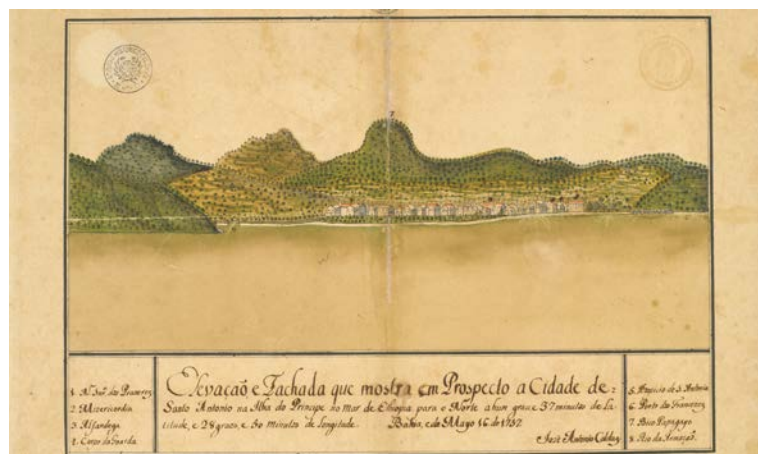 7
1 N. Snr.ª dos Prazeres
2 Misericordia
3 Alfandega
4 Corpo da Guarda
Elevaçaõ e Fachada que mostra em Prospecto a Cidade de:
Santo Antonio na Ilha do Principe no mar de Ethiopia para o Norte a hum grau e 37 minutos de La-
titude, e 28 graos, e 50 minutos de Longitude. Bahia, e de Mayo 16 de 1757
Jozé Antonio Caldas
5 Hospicio de S. Antonio
6 Porto dos Francezes
7 Bico Papagayo
8 Rio da Armaçaõ.